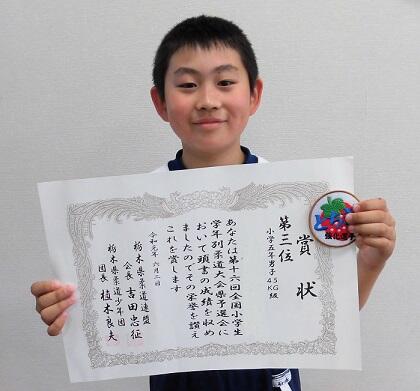 賞状
第三位
小学五年男子45KG級
あなたは第十六回全国小学生
学年別柔道大会県予選会に
おいて頭書の成績を収め
ましたのでその栄誉を讃え
これを賞します
令和元年六月二日
栃木県柔道連盟
会長 吉田忠征
栃木県柔道少年団
団長 植木良夫